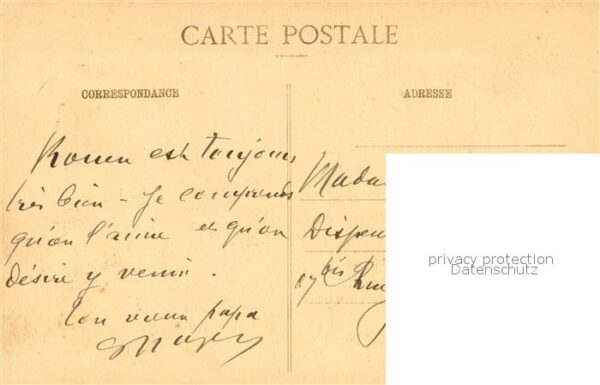 CARTE POSTALE
CORRESPONDANCE
ADRESSE
Rouen est toujours
très bien - Je comprends
qu'on l'aime et qu'on
désire y venir.
Ton vieux papa
Mada
Dispen
bis Rue
privacy protection
Datenschutz